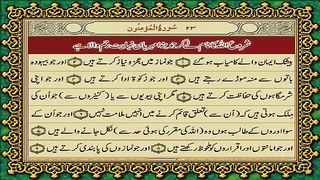 ٢٣ سُورَةُ الْمُؤْمِنُونَ
شروع اللہ کا نام لے کر جو بڑا مہربان نہایت رحم والا ہے
بیشک ایمان والے کامیاب ہو گئے جو نماز میں عجز و نیاز کرتے ہیں اور جو بیہودہ
باتوں سے منہ موڑے رہتے ہیں اور جو زکوٰۃ ادا کرتے ہیں اور جو اپنی
شرمگاہوں کی حفاظت کرتے ہیں مگر اپنی بیویوں سے یا (کنیزوں سے) جو اُن کی
مِلک ہوتی ہیں کہ (اُن سے) تعلق قائم کرنے میں انہیں ملامت نہیں اور جو ان کے
سوا اوروں کے طالب ہوں وہ (اللہ کی مقرر کی ہوئی حد سے) نکل جانے والے ہیں
اور جو امانتوں اور اقراروں کو ملحوظ رکھتے ہیں اور جو نمازوں کی پابندی کرتے ہیں